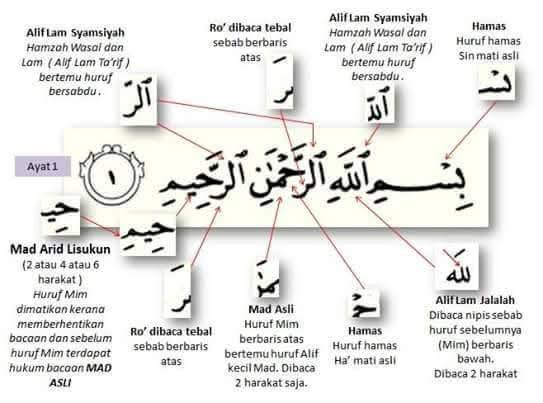 Alif Lam Syamsiyah
Hamzah Wasal dan
Lam ( Alif Lam Ta'rif )
bertemu huruf
bersabdu .
الرَّ
Ro' dibaca tebal
sebab berbaris
atas
رَ
Alif Lam Syamsiyah
Hamzah Wasal dan
Lam ( Alif Lam Ta'rif )
bertemu huruf
bersabdu .
اللّٰ
Hamas
Huruf hamas
Sin mati asli
سْ
Ayat 1
بِسْمِ ٱللَّهِ ٱلرَّحْمَٰنِ ٱلرَّحِيمِ ١
حِيـ
حِيمِ
Mad Arid Lisukun
(2 atau 4 atau 6
harakat )
Huruf Mim
dimatikan kerana
memberhentikan
bacaan dan sebelum
huruf Mim terdapat
hukum bacaan MAD
ASLI
رَ
Ro' dibaca tebal
sebab berbaris
atas
مَٰن
Mad Asli
Huruf Mim
berbaris atas
bertemu huruf Alif
kecil Mad. Dibaca
2 harakat saja.
حْ
Hamas
Huruf hamas
Ha' mati asli
للَّه
Alif Lam Jalalah
Dibaca nipis sebab
huruf sebelumnya
(Mim) berbaris
bawah.
Dibaca 2 harakat